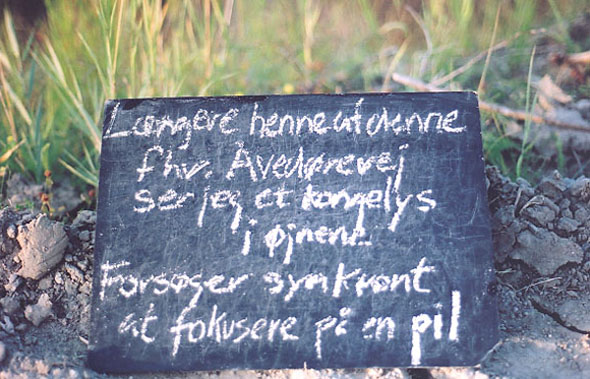 Længere henne ad denne
fhv. Avedørevej
ser jeg et kongelys
i øjnene
Forsøger synkront
at fokusere på en pil